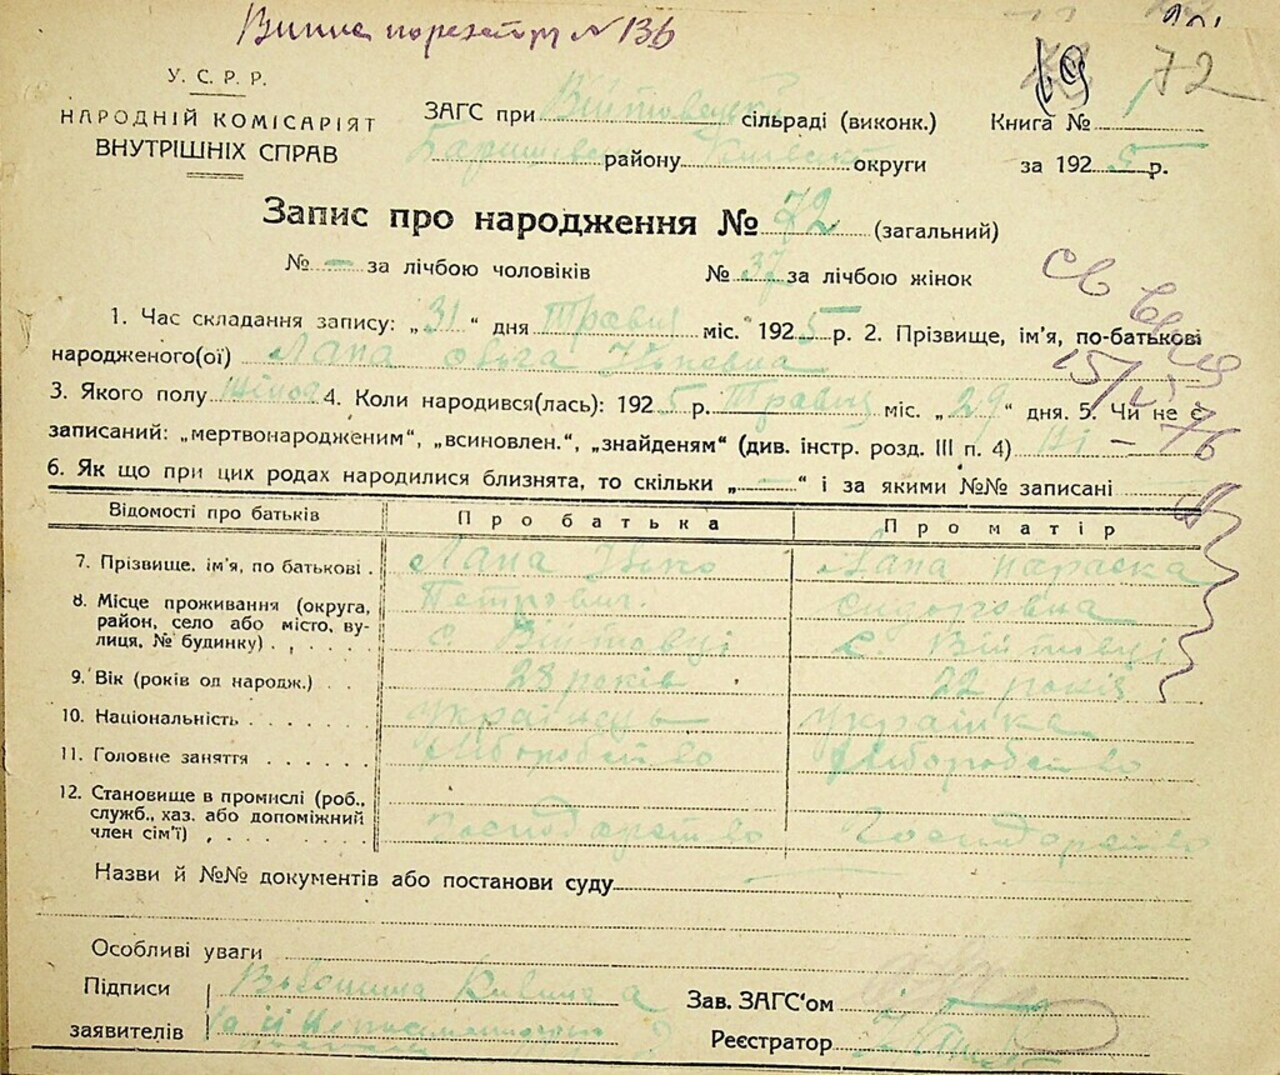 № 136
69 72
У. С. Р. Р.
НАРОДНІЙ КОМІСАРІЯТ
ВНУТРІШНІХ СПРАВ
ЗАГС при Війтовецькій сільраді (виконк.) Книга № 1
району округи за 1925 р.
Запис про народження № 72 (загальний)
№ — за лічбою чоловіків № 37 за лічбою жінок
1. Час складання запису: „31“ дня Травця міс. 1925 р. 2. Прізвище, ім’я, по-батькові
народженого(ої) Лапа Ольга
3. Якого полу 4. Коли народився(лась): 1925 р. Травця міс. „29“ дня. 5. Чи не є
записаний: „мертвонародженим“, „всиновлен.“, „знайденям“ (див. інстр. розд. III п. 4) Ні —
6. Як що при цих родах народилися близнята, то скільки „—“ і за якими №№ записані
Відомості про батьків Про батька Про матір
7. Прізвище, ім’я, по батькові . Лапа Лапа Параска
Петрович. Сидоровна
8. Місце проживання (округа,
район, село або місто, ву-
лиця, № будинку) . с. Війтовці с. Війтовці
9. Вік (років од народж.) 28 років 22 років
10. Національність Українець Українка
11. Головне заняття Хліборобство Хліборобство
12. Становище в промислі (роб.,
служб., хаз. або допоміжний
член сім’ї) Господарство Господарство
Назви й №№ документів або постанови суду
Особливі уваги
Підписи
заявителів
Зав. ЗАГС‘ом
Реєстратор